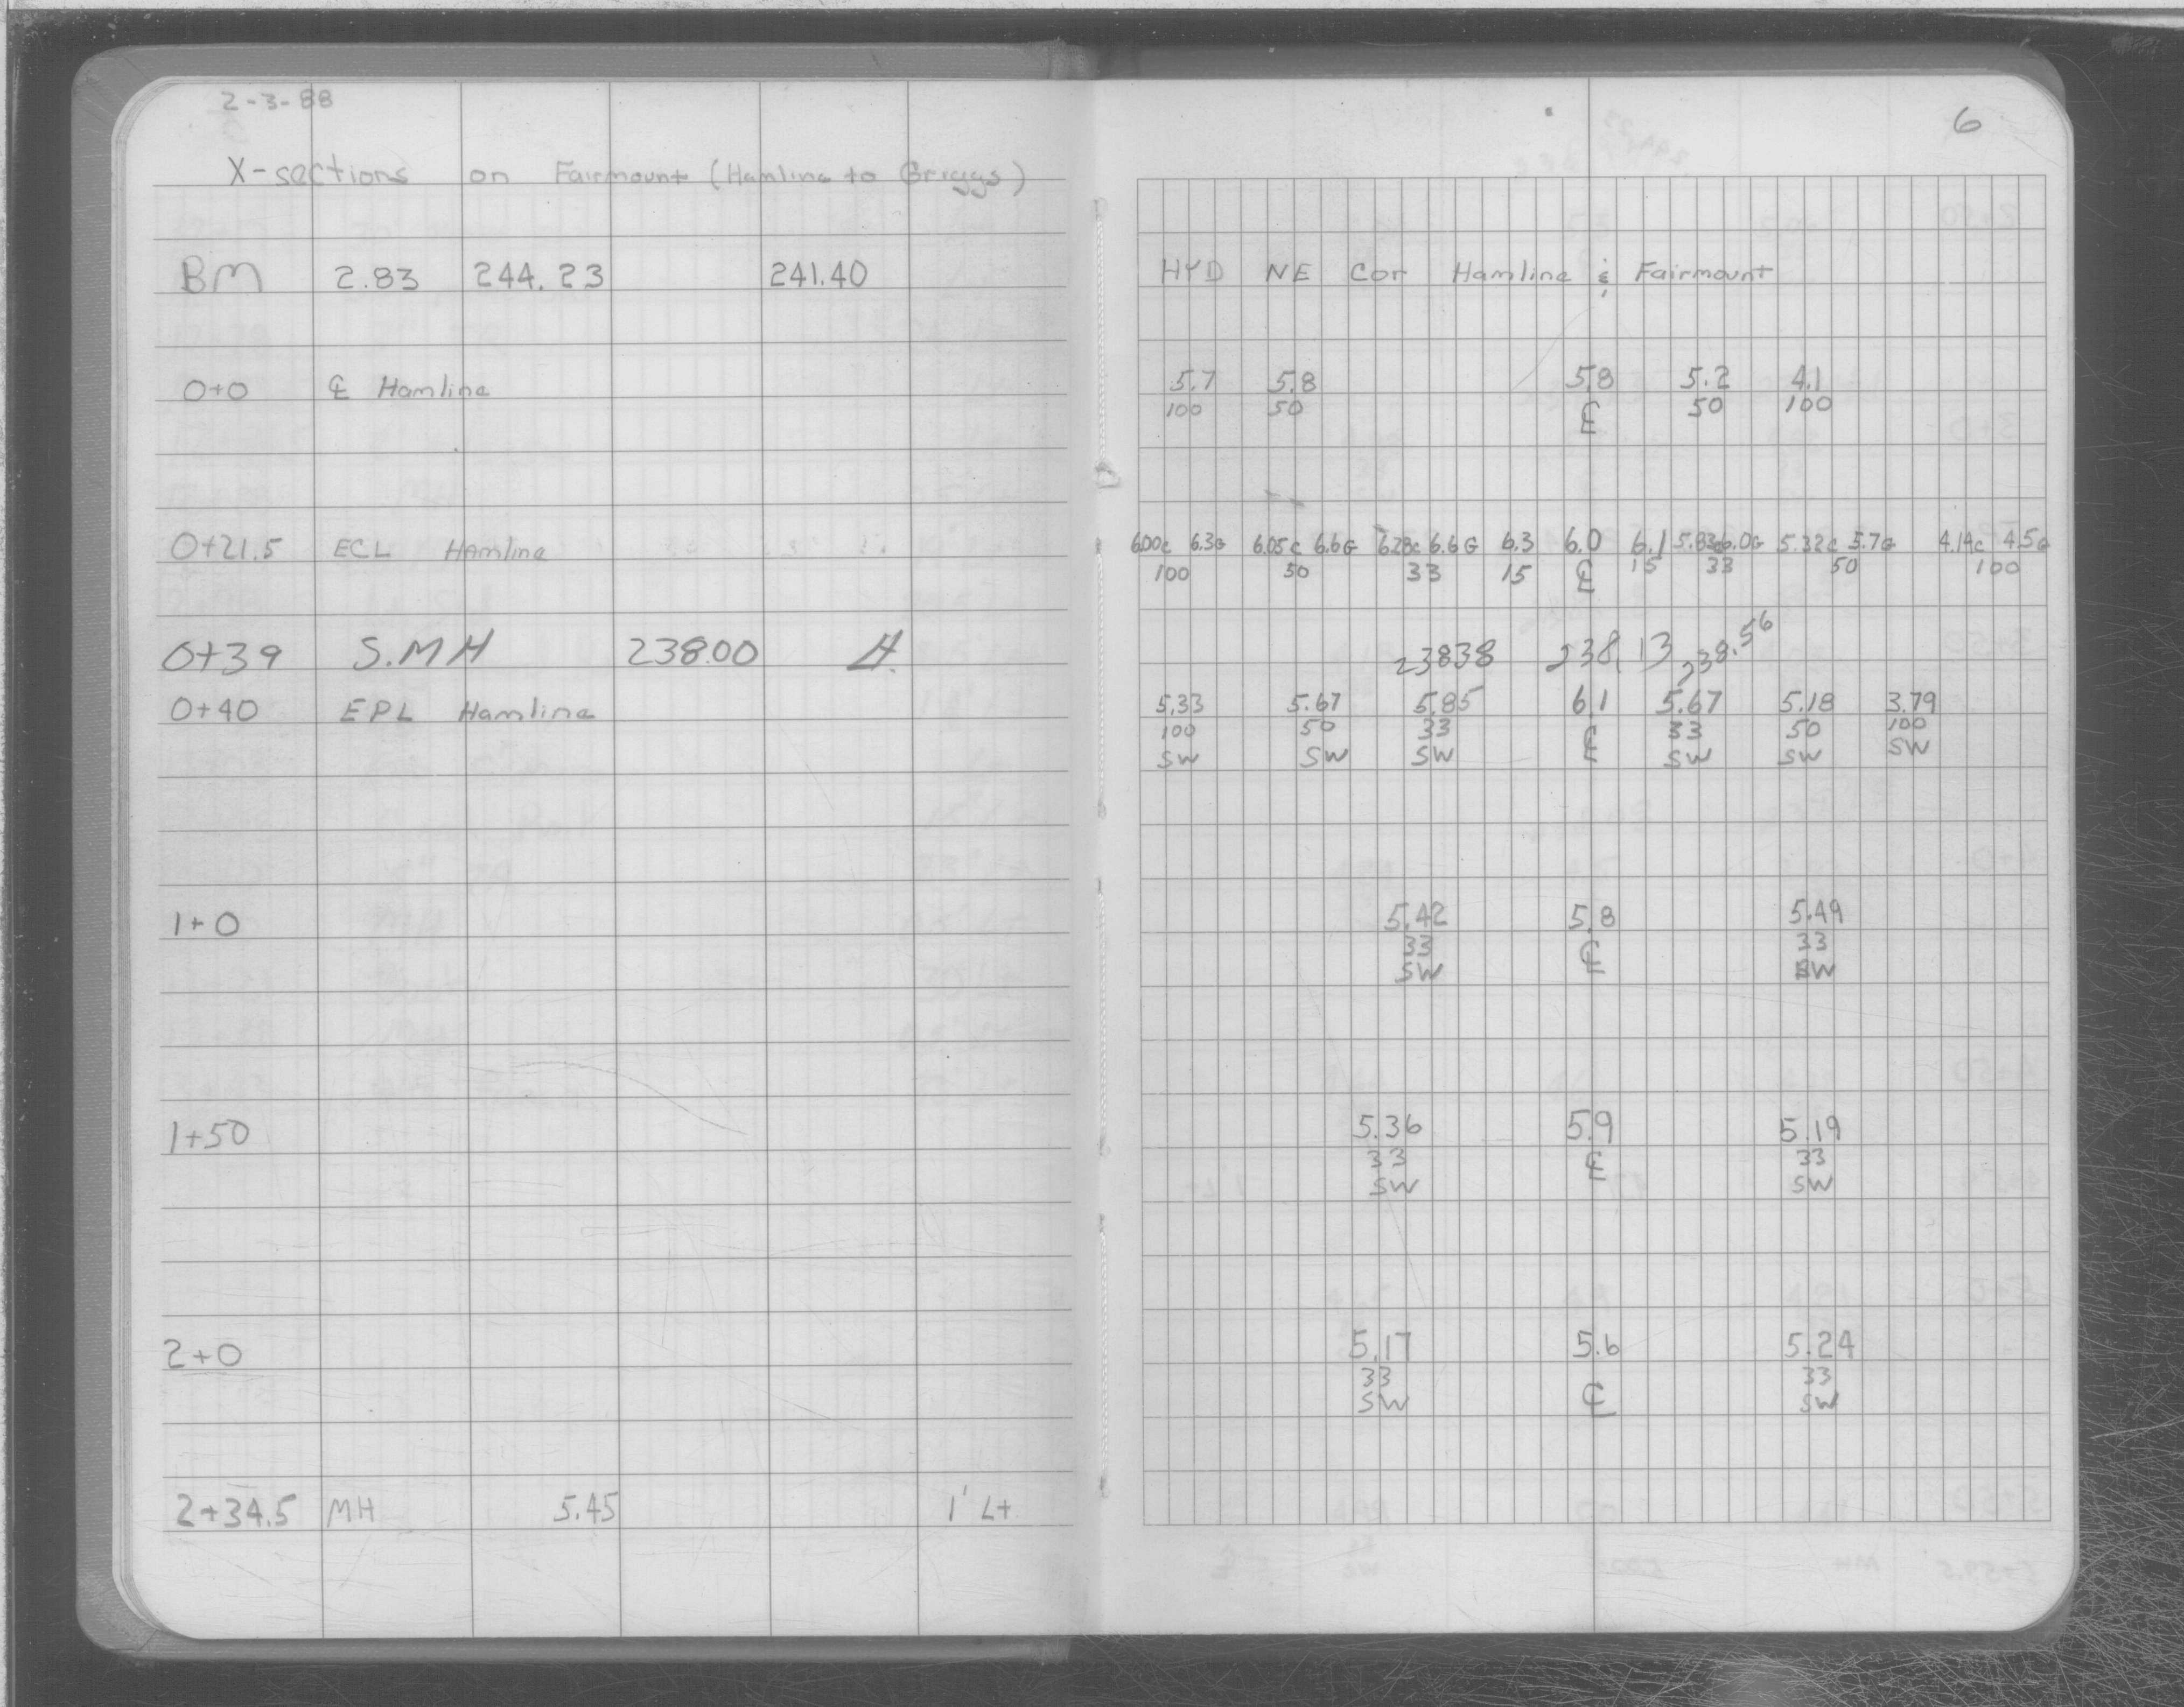 2-3-88
6
X-sections on Fairmount (Hamline to Briggs)
BM 2.83 244.23 241.40 HYD NE Cor Hamline & Fairmount
0+0 ℄ Hamline 5.7 5.8 5.8 5.2 4.1
100 50 ℄ 50 100
0+21.5 ECL Hamline 6.00c 6.3G 6.05c 6.6G 6.28c 6.6G 6.3 6.0 6.1 5.83c 6.0G 5.32c 5.7G 4.14c 4.5G
100 50 33 15 ℄ 15 33 50 100
0+39 S.MH 238.00 ℄ 238 38 238.13 238.56
0+40 EPL Hamline 5.33 5.67 5.85 6.1 5.67 5.18 3.79
100 50 33 ℄ 33 50 100
SW SW SW SW SW SW
1+0 5.42 5.8 5.49
33 ℄ 33
SW SW
1+50 5.36 5.9 5.19
33 ℄ 33
SW SW
2+0 5.17 5.6 5.24
33 ℄ 33
SW SW
2+34.5 MH 5.45 1' Lt